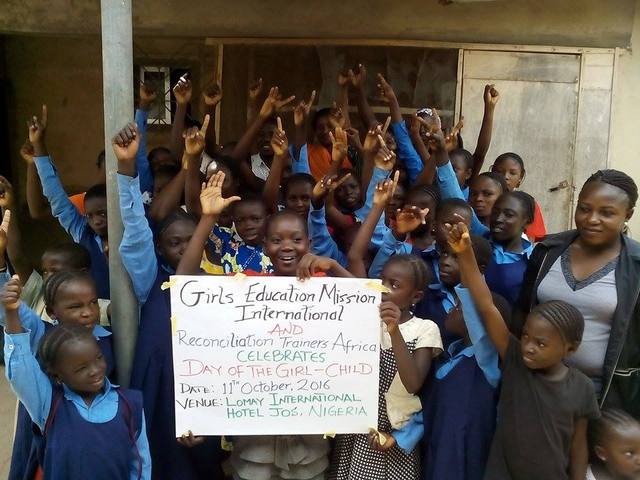 Girls Education Mission
International
AND
Reconciliation Trainers Africa
CELEBRATES
DAY OF THE GIRL-CHILD
DATE: 11th October, 2016
VENUE: LOMAY INTERNATIONAL
HOTEL JOS, NIGERIA